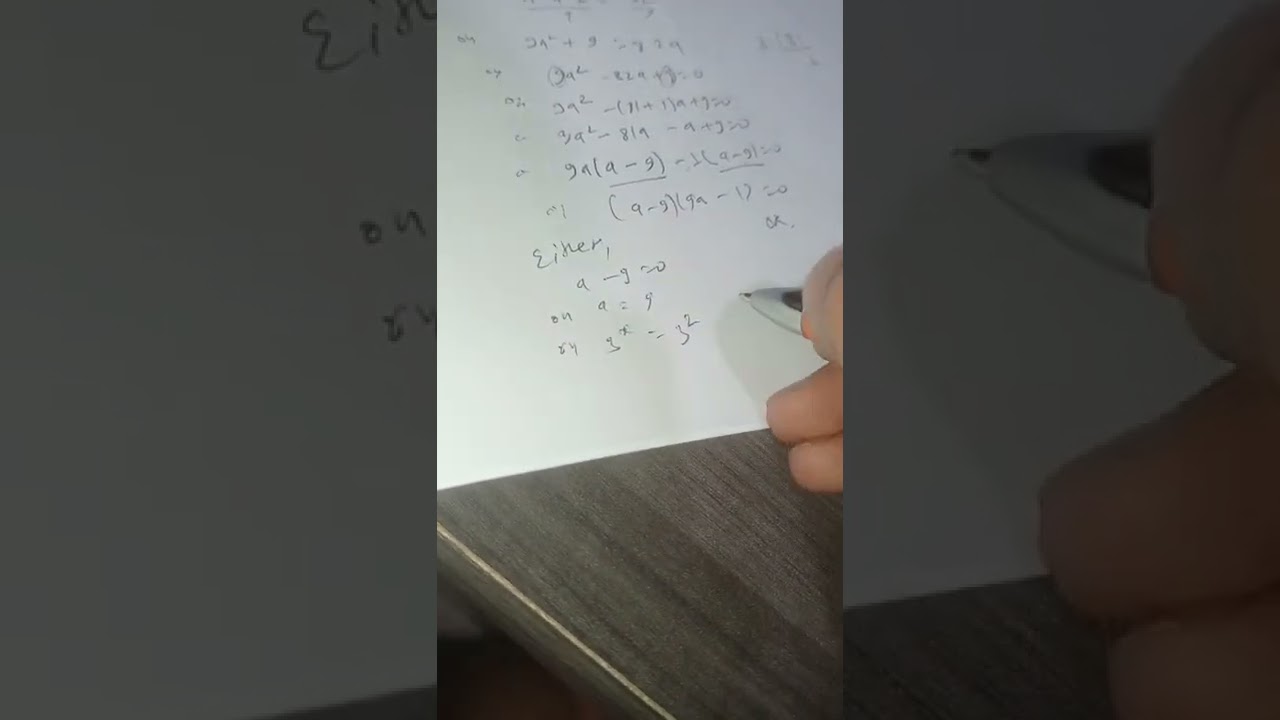 or 9a² + 9 = 82a
or 9a² - 82a + 9 = 0
or 9a² - (81+1)a + 9 = 0
or 9a² - 81a - a + 9 = 0
or 9a(a - 9) - 1(a - 9) = 0
or (a - 9)(9a - 1) = 0
Either, OR,
a - 9 = 0
or a = 9
or 3ˣ = 3²